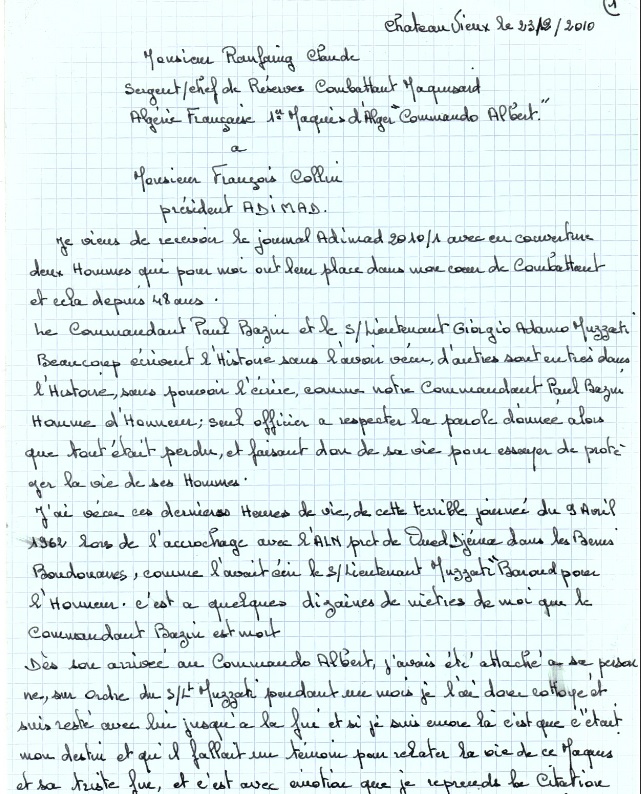 1
Chateau Vieux le 23/8/2010
Monsieur Ranfaing Claude
Sergent/chef de Réserves Combattant Maquisard
Algérie Française 1er Maquis d'Alger "Commando Albert."
a
Monsieur François Collin
président ADIMAD.
Je viens de recevoir le journal Adimad 2010/1 avec en couverture
deux Hommes qui pour moi ont leur place dans mon cœur de Combattant
et cela depuis 48 ans.
Le Commandant Paul Bazin et le s/Lieutenant Giorgio Adamo Muzzati
Beaucoup écrivent l'Histoire sans l'avoir vécu, d'autres sont entrés dans
l'Histoire, sans pouvoir l'écrire, comme notre Commandant Paul Bazin
Homme d'Honneur; seul officier a respecter la parole donnée alors
que tout était perdu, et faisant don de sa vie pour essayer de proté-
ger la vie de ses Hommes.
J'ai vécu ces dernieres Heures de vie, de cette terrible journée du 9 Avril
1962 lors de l'accrochage avec l'ALN pret de Oued Djéma dans les Beni
Boudouanes, comme l'avait écri le s/Lieutenant Muzzati "Baroud pour
l'Honneur. c'est a quelques dizaines de mètres de moi que le
Commandant Bazin est mort
Dès son arrivée au Commando Albert, j'avais été attaché a sa person
ne, sur ordre du s/Lt Muzzati pendant un mois je l'ai donc cottoyé et
suis resté avec lui jusqu'a la fin et si je suis encore là c'est que c'était
mon destin et qu'il fallait un témoin pour relater la vie de ce Maquis
et sa triste fin, et c'est avec émotion que je reprends la Citation